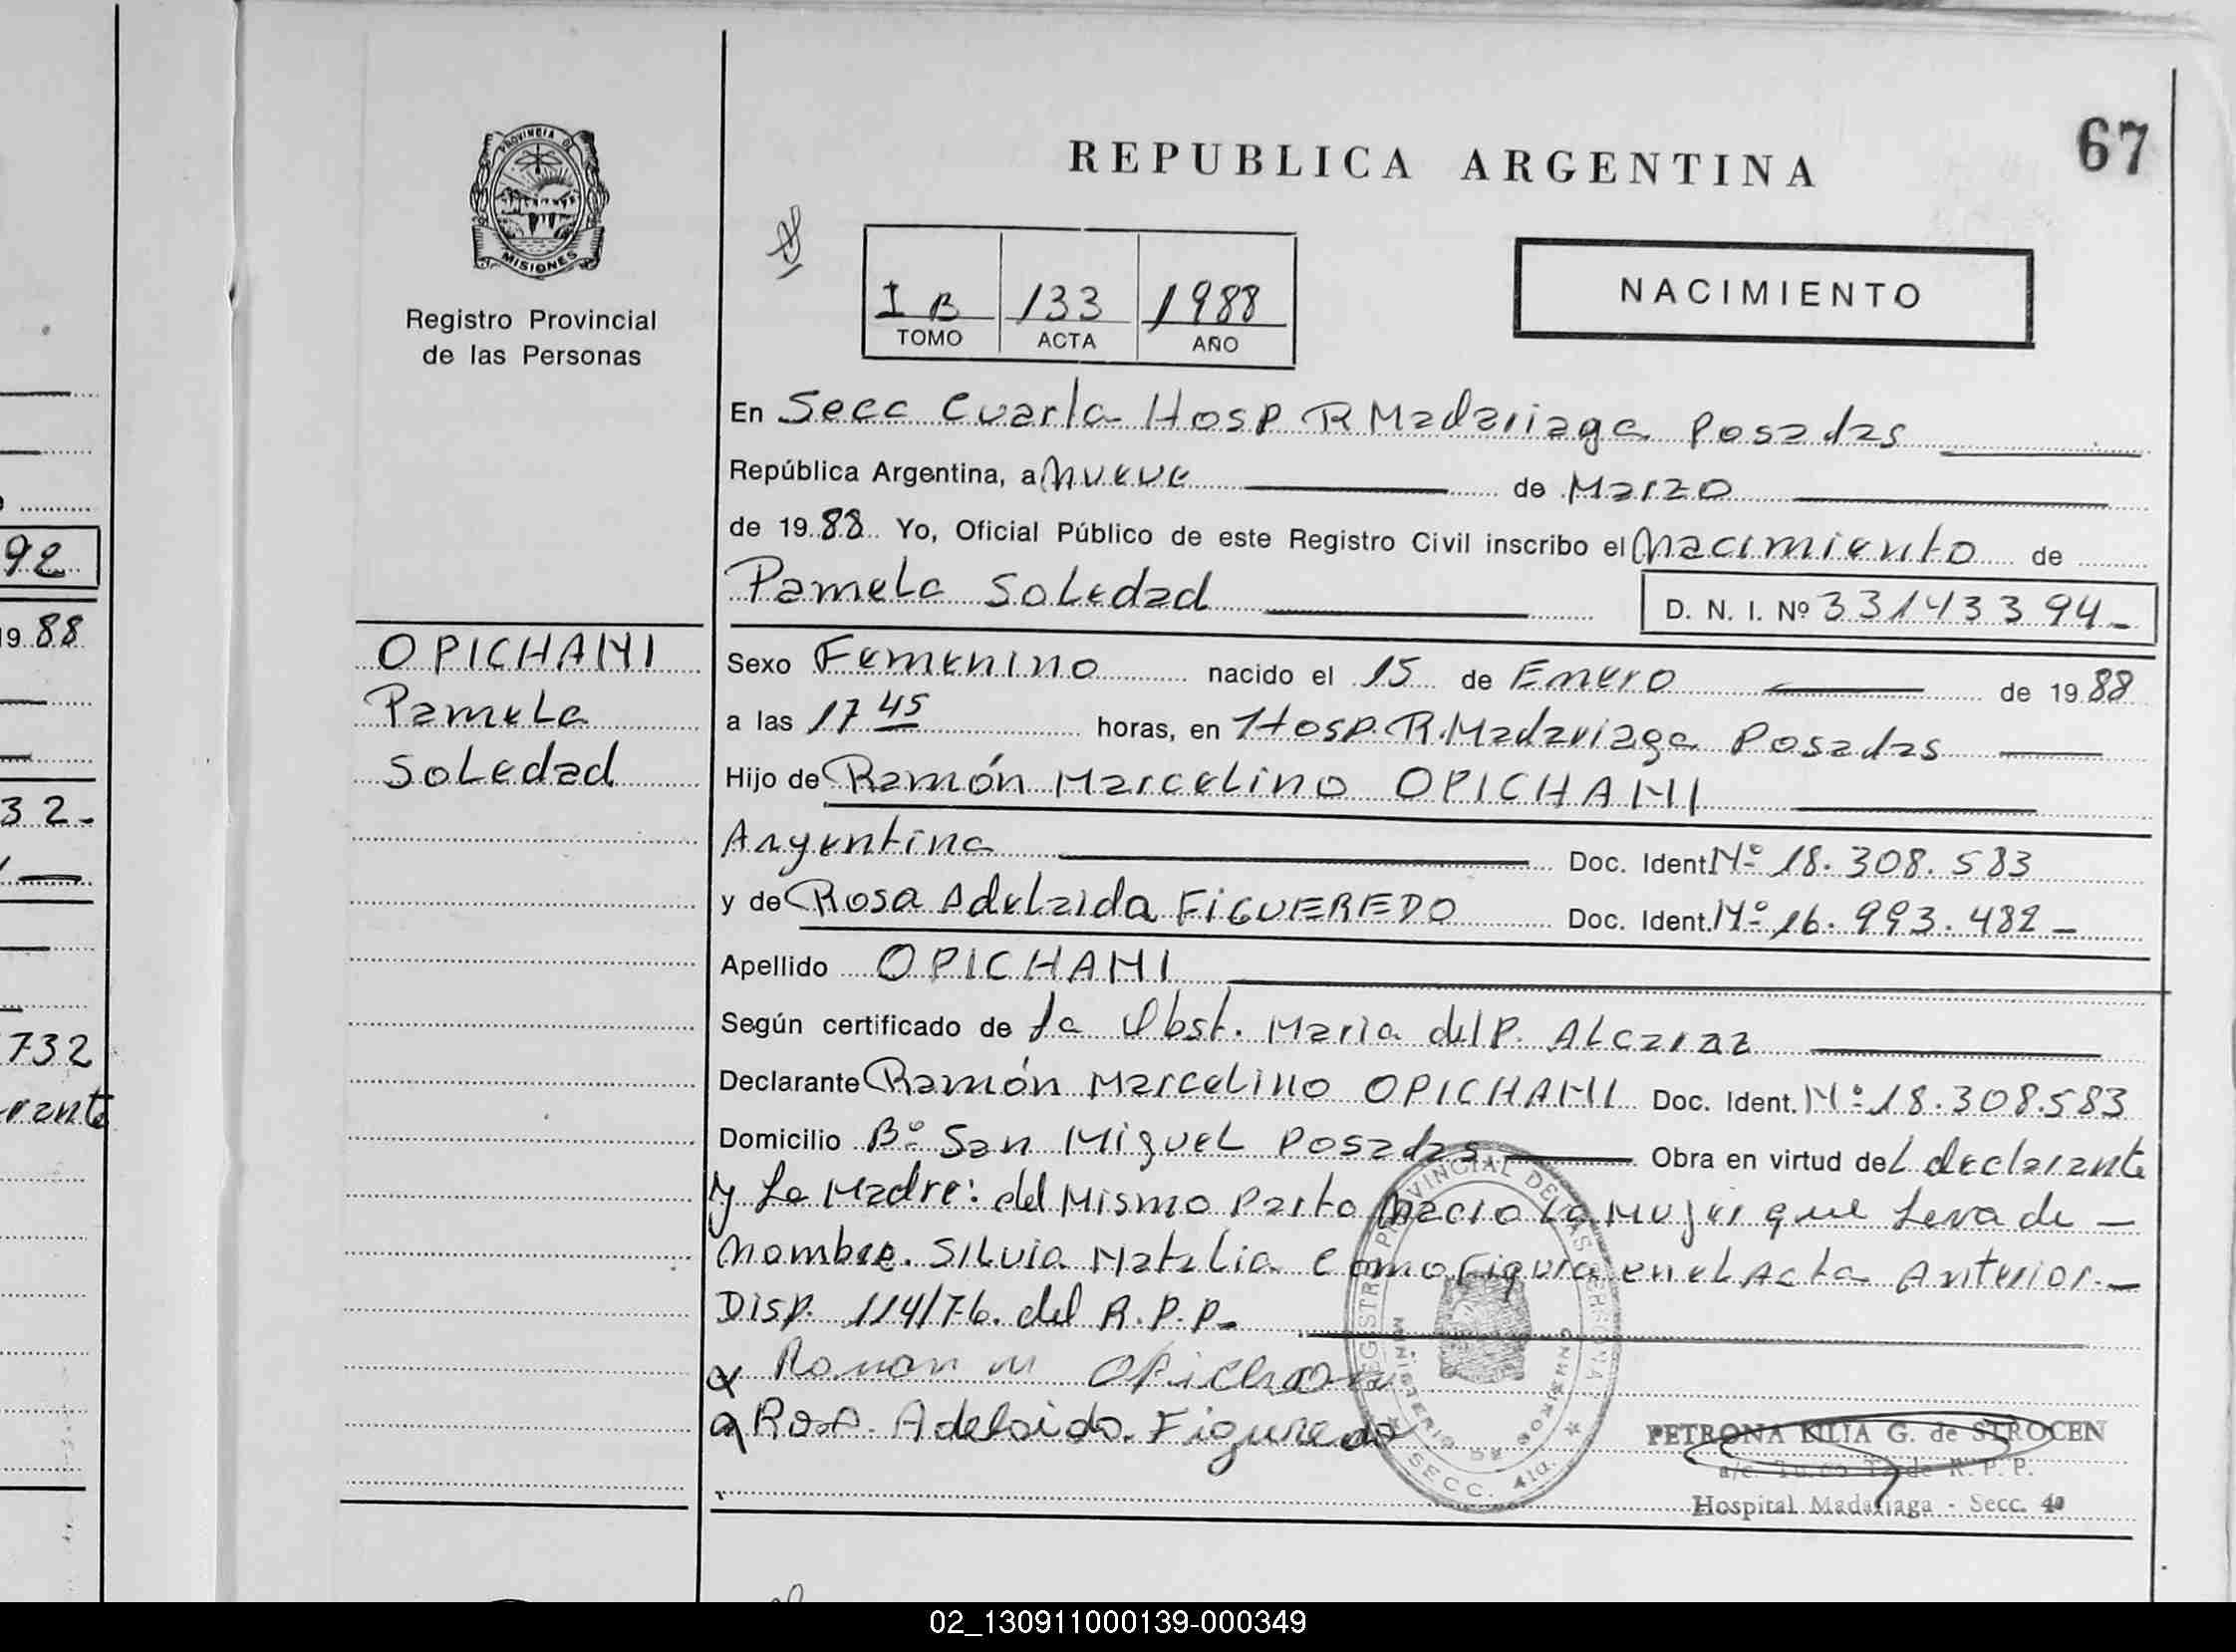 92
19.88
32-
732
rante
PROVINCIA DE
MISIONES
Registro Provincial
de las Personas
OPICHAMI
Pamela
Soledad
67
REPUBLICA ARGENTINA
I B 133 1988
TOMO ACTA AÑO
NACIMIENTO
En Secc Cuarta Hosp R Madariaga Posadas
República Argentina, a Nueve de Marzo
de 19 88 Yo, Oficial Público de este Registro Civil inscribo el Nacimiento de
Pamela Soledad D. N. I. Nº 33143394-
Sexo Femenino nacido el 15 de Enero de 19 88
a las 17 45 horas, en Hosp. R. Madariaga Posadas
Hijo de Ramón Marcelino OPICHAMI
Argentina Doc. Ident. Nº 18.308.583
y de Rosa Adelaida FIGUEREDO Doc. Ident. Nº 16.993.482-
Apellido OPICHAMI
Según certificado de la Obst. Maria del P. Alcaraz
Declarante Ramón Marcelino OPICHAMI Doc. Ident. Nº 18.308.583
Domicilio Bº San Miguel Posadas Obra en virtud del declarante
y La Madre: del Mismo Parto Nacio La Mujer que Leva de -
Nombre. Silvia Natalia Como Figura en el Acta Anterior.-
Disp. 114/76. del R.P.P.-
Ramon M Opicham
Rosa Adelaida Figueredo
REGISTRO PROVINCIAL DE LAS PERSONAS
MINISTERIO DE GOBIERNO
SECC. 4ta.
PETRONA KILIA G. de STROCEN
a/c. Turno Tarde R. P. P.
Hospital Madariaga - Secc. 4a
02_130911000139-000349